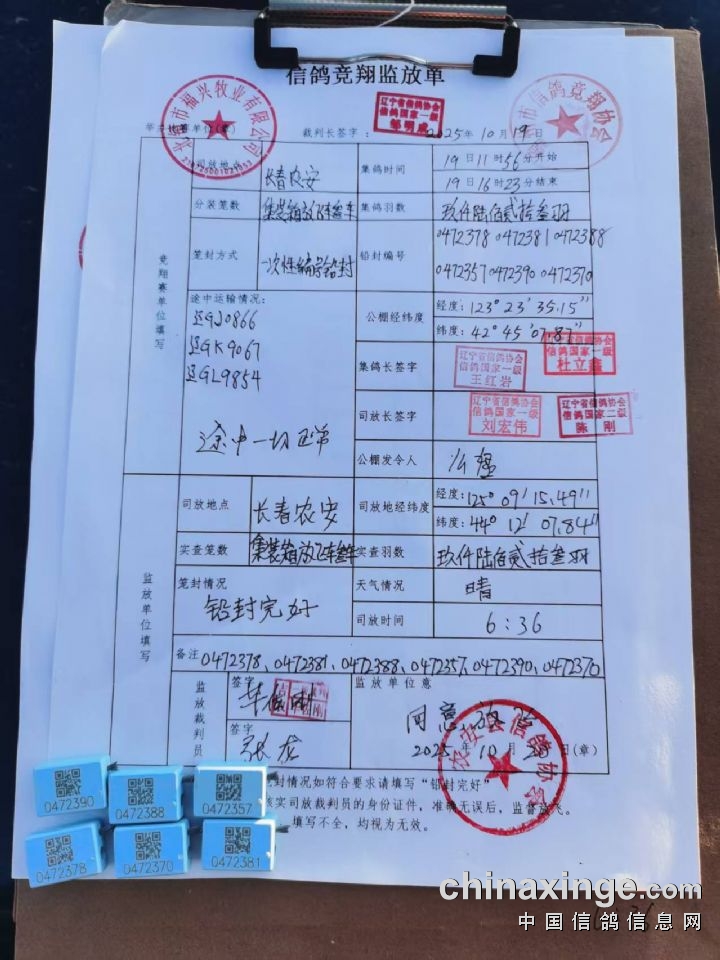 信鸽竞翔监放单
市福兴牧业有限公司
市信鸽竞翔协会
辽宁省信鸽协会
信鸽国家一级
裁判长签字：
2025年10月19日
竞翔赛单位填写
司放地点 长春农安 集鸽时间 19日11时56分开始
19日16时23分结束
分装笼数 集装箱放飞车叁车 集鸽羽数 玖仟陆佰贰拾叁羽
笼封方式 一次性编号铅封 铅封编号 0472378 0472381 0472388
0472357 0472390 0472370
途中运输情况：
辽GJ0866
辽GK9067
辽GL9854
途中一切正常
公棚经纬度 经度：123°23′35.15″
纬度：42°45′07.87″
集鸽长签字
辽宁省信鸽协会
信鸽国家一级
王红岩
信鸽国家一级
杜立鑫
司放长签字
辽宁省信鸽协会
信鸽国家一级
刘宏伟
辽宁省信鸽协会
信鸽国家二级
陈刚
公棚发令人
监放单位填写
司放地点 长春农安 司放地经纬度 经度：125°09′15.49″
纬度：44°12′07.84″
实查笼数 集装箱放飞车叁车 实查羽数 玖仟陆佰贰拾叁羽
笼封情况 铅封完好 天气情况 晴
司放时间 6：36
备注 0472378、0472381、0472388、0472357、0472390、0472370
监放裁判员 签字
签字
监放单位意
同意放飞
2025年10月20日（章）
农安县信鸽协会
笼封情况如符合要求请填写“铅封完好”
核实司放裁判员的身份证件，准确无误后，监督放飞。
填写不全，均视为无效。
0472390
0472388
0472357
0472378
0472370
0472381
chinaxinge.com
中国信鸽信息网